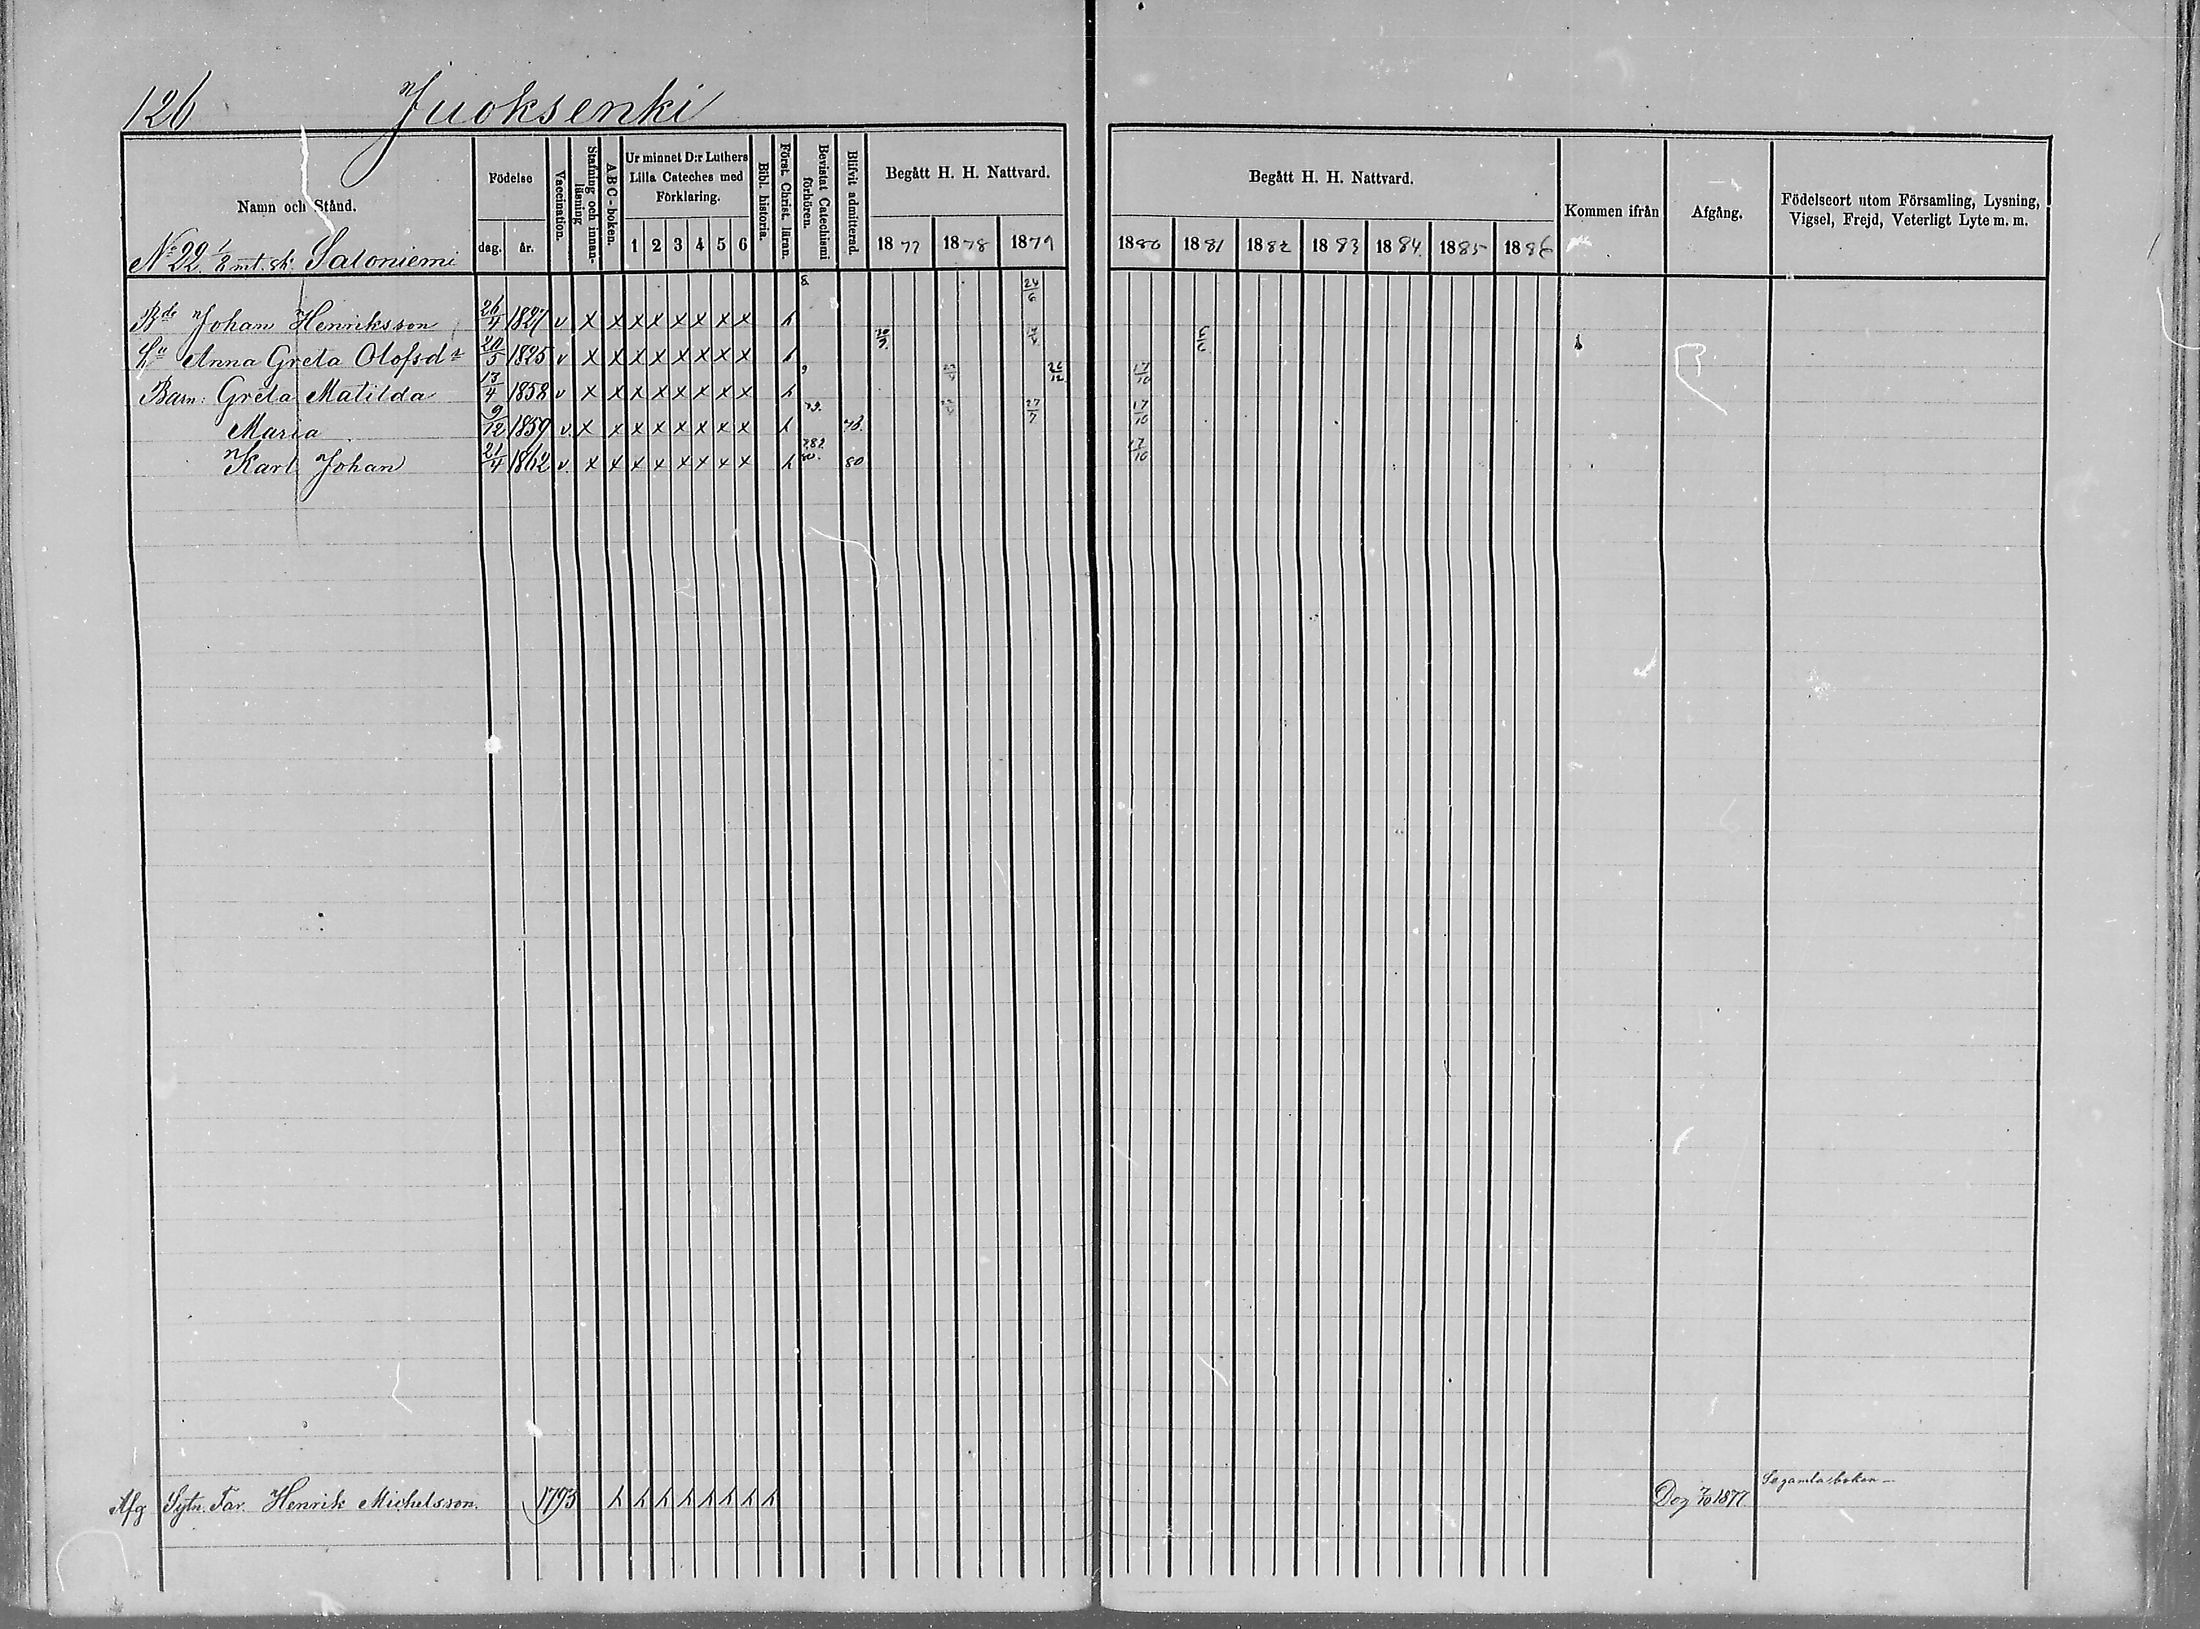 126 Juoksenki
Namn och Stånd.
Födelse
dag. år.
Vaccination.
Stafning och innanläsning
A B C - boken.
Ur minnet D:r Luthers Lilla Cateches med Förklaring.
1 2 3 4 5 6
Bibl. historia.
Först. Christ. läran.
Bevistat Catechismi förhören.
Blifvit admitterad.
Begått H. H. Nattvard.
1877 1878 1879
Begått H. H. Nattvard.
1880 1881 1882 1883 1884 1885 1886
Kommen ifrån
Afgång.
Födelseort utom Församling, Lysning,
Vigsel, Frejd, Veterligt Lyte m. m.
No 22 1/2 mt. sk. Saloniemi
Bde Johan Henriksson 26/4 1827 v x x x x x x x x 24/6
Hu Anna Greta Olofsdr 20/5 1825 v x x x x x x x x
Barn: Greta Matilda 13/4 1858 v x x x x x x x x 17/10
Maria 9/12 1859 v. x x x x x x x x 78. 27/7 17/10
Karl Johan 21/4 1862 v. x x x x x x x x 80 17/10
Afg Sytn. Far. Henrik Michelsson. 1793 Dog 7/10 1877 Se gamla boken